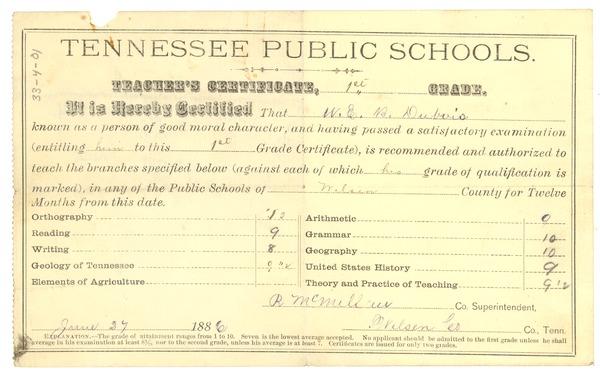 TENNESSEE PUBLIC SCHOOLS.
TEACHER'S CERTIFICATE, 1st GRADE.
It is Hereby Certified That W. E. B. Dubois
known as a person of good moral character, and having passed a satisfactory examination
(entitling him to this 1st Grade Certificate), is recommended and authorized to
teach the branches specified below (against each of which his grade of qualification is
marked), in any of the Public Schools of Wilson County for Twelve
Months from this date.
Orthography
Reading 9
Writing 8
Geology of Tennessee 9 1/2
Elements of Agriculture
Arithmetic
Grammar 10
Geography 10
United States History 9
Theory and Practice of Teaching 9 1/2
R McMillin Co. Superintendent,
June 27 1886 Wilson Co Co, Tenn.
EXPLANATION.—The grade of attainment ranges from 1 to 10. Seven is the lowest average accepted. No applicant should be admitted to the first grade unless he shall
average in his examination at least 8½, nor to the second grade, unless his average is at least 7. Certificates are issued for only two grades.
33-4-01